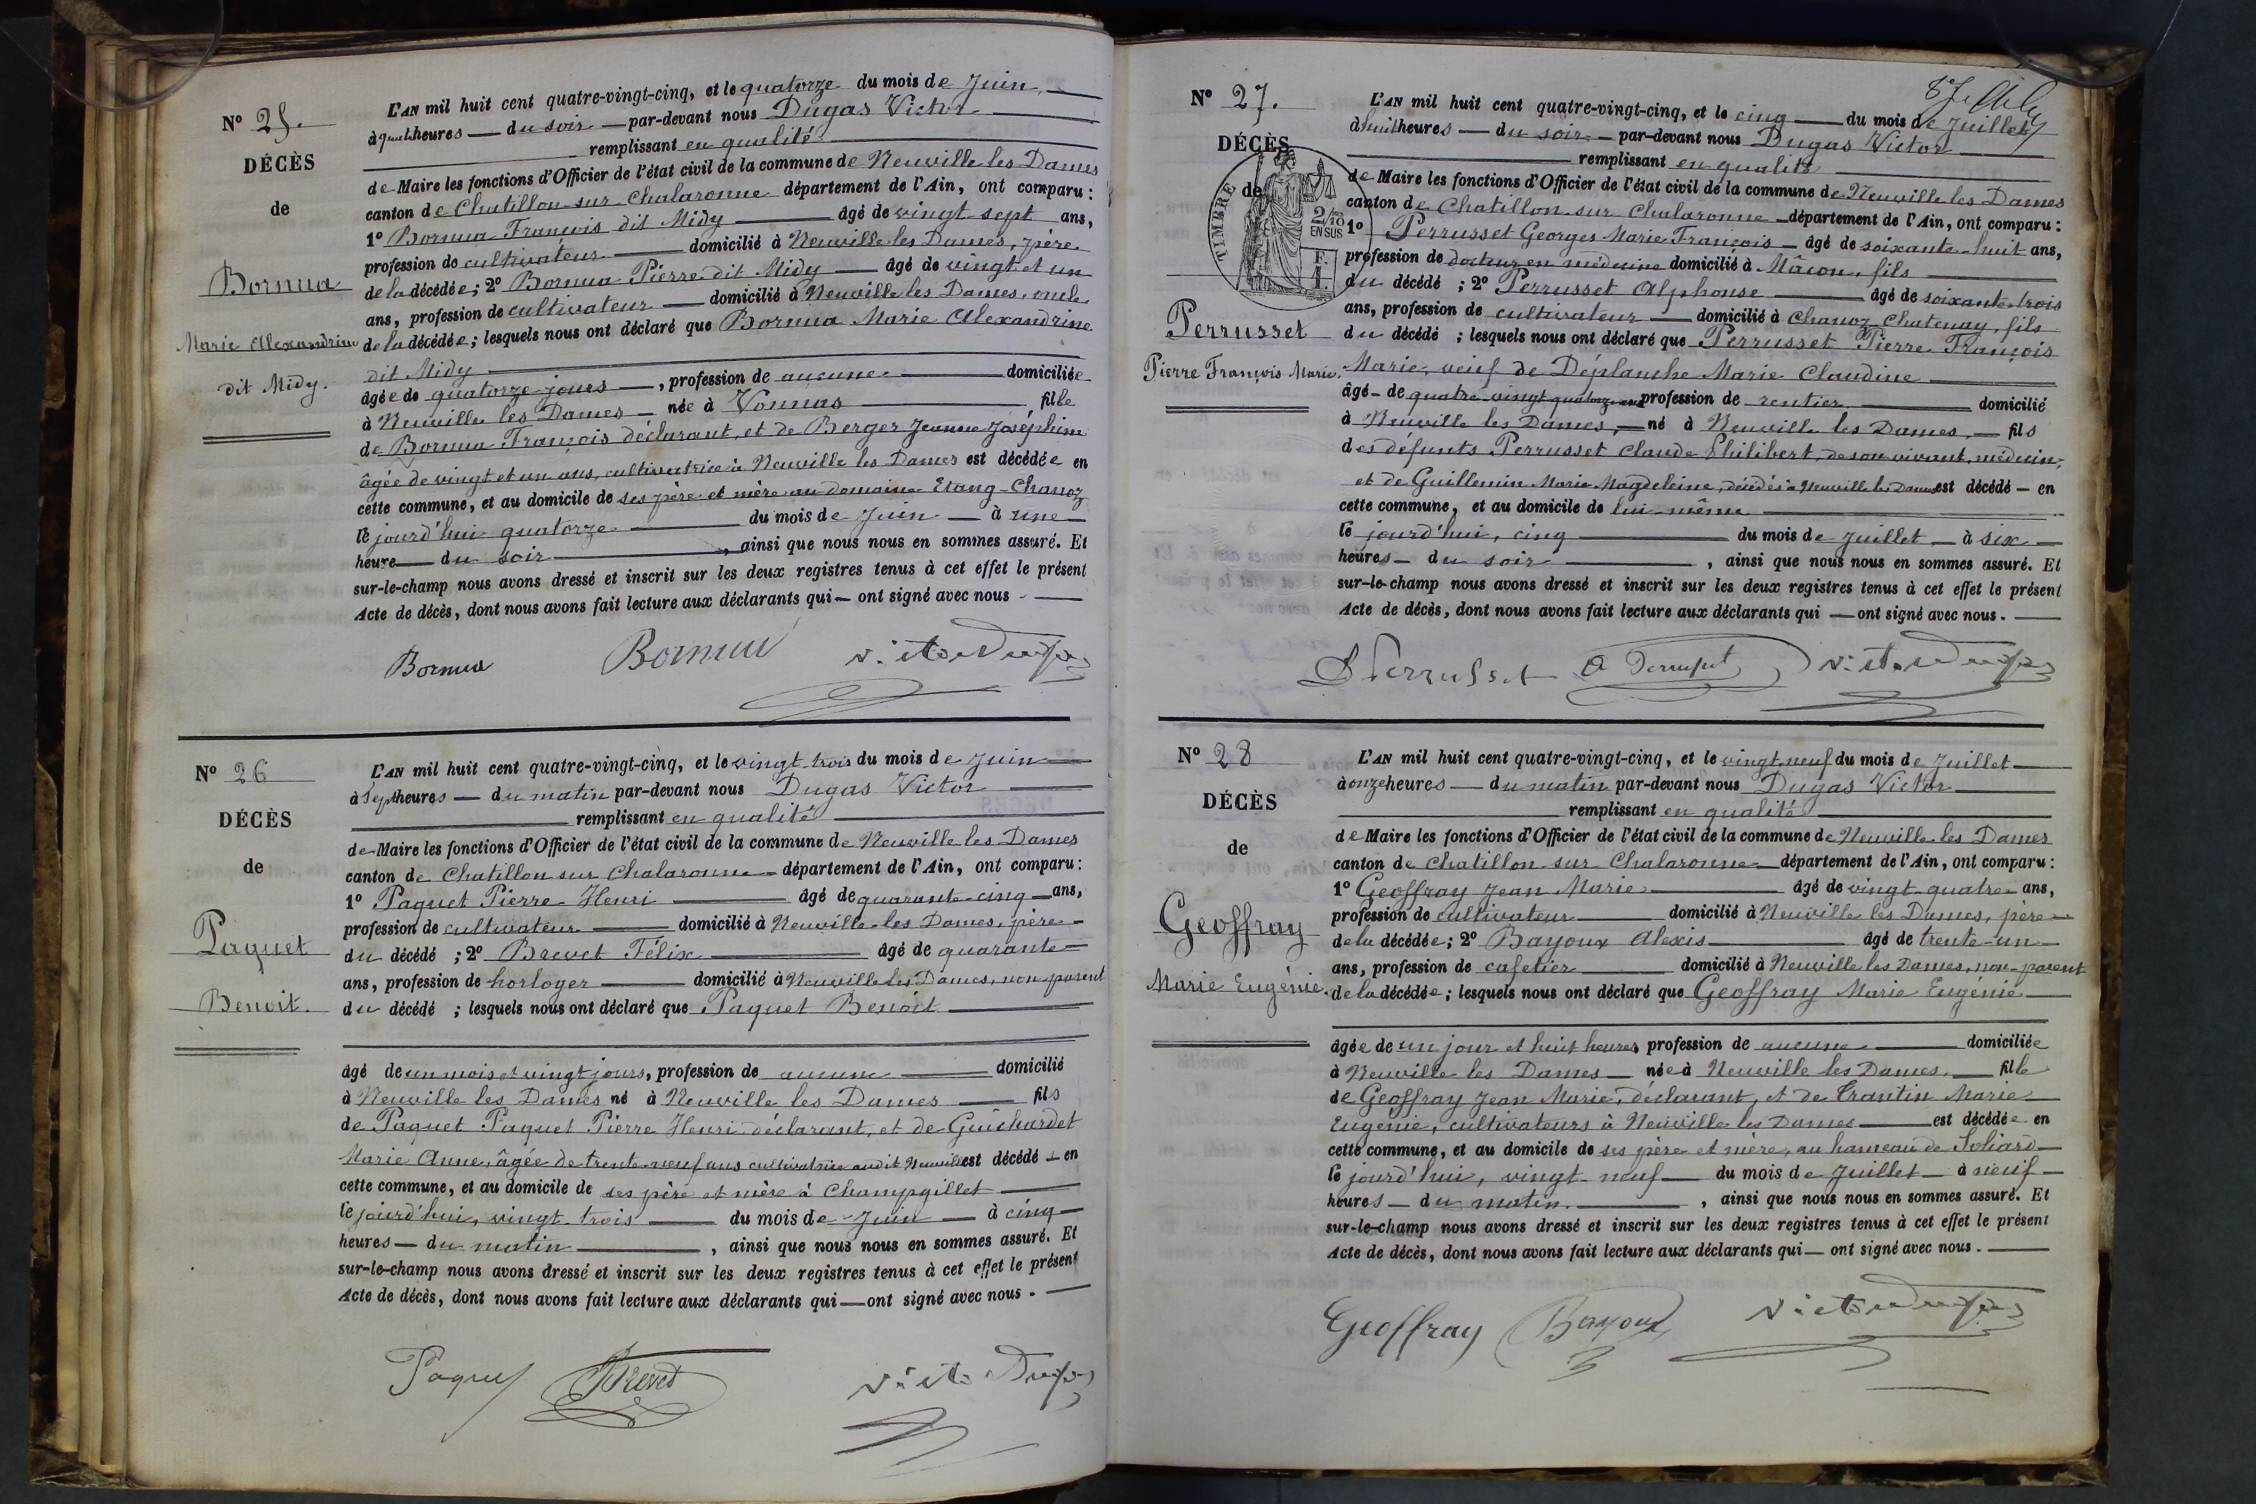 N° 25.
DÉCÈS
de
Bornua
Marie Alexandrine
dit Midy.
L'AN mil huit cent quatre-vingt-cinq, et le quatorze du mois de Juin
à quatre heures du soir par-devant nous Dugas Victor
remplissant en qualité
de Maire les fonctions d'Officier de l'état civil de la commune de Neuville les Dames
canton de Chatillon sur Chalaronne département de l'Ain, ont comparu :
1° Bornua François dit Midy âgé de vingt sept ans,
profession de cultivateur domicilié à Neuville les Dames, père
de la décédée ; 2° Bornua Pierre dit Midy âgé de vingt et un
ans, profession de cultivateur domicilié à Neuville les Dames, oncle
de la décédée ; lesquels nous ont déclaré que Bornua Marie Alexandrine
dit Midy
âgée de quatorze jours, profession de aucune domiciliée
à Neuville les Dames née à Vonnas fille
de Bornua François déclarant, et de Berger Jeanne Joséphine
âgée de vingt et un ans, cultivatrice à Neuville les Dames est décédée en
cette commune, et au domicile de ses père et mère au domaine Etang-Chanoz
le jourd'hui quatorze du mois de Juin à une
heure du soir, ainsi que nous nous en sommes assuré. Et
sur-le-champ nous avons dressé et inscrit sur les deux registres tenus à cet effet le présent
Acte de décès, dont nous avons fait lecture aux déclarants qui ont signé avec nous
Bornua Bornua Victor Dugas
N° 26
DÉCÈS
de
Paquet
Benoit.
L'AN mil huit cent quatre-vingt-cinq, et le vingt trois du mois de Juin
à Sept heures du matin par-devant nous Dugas Victor
remplissant en qualité
de Maire les fonctions d'Officier de l'état civil de la commune de Neuville les Dames
canton de Chatillon sur Chalaronne département de l'Ain, ont comparu :
1° Paquet Pierre Henri âgé de quarante-cinq ans,
profession de cultivateur domicilié à Neuville les Dames, père
du décédé ; 2° Brevet Félix âgé de quarante
ans, profession de horloger domicilié à Neuville les Dames, non parent
du décédé ; lesquels nous ont déclaré que Paquet Benoit
âgé de un mois et vingt jours, profession de aucune domicilié
à Neuville les Dames né à Neuville les Dames fils
de Paquet Paquet Pierre Henri déclarant, et de Guichardet
Marie Anne, âgée de trente-neuf ans cultivatrice audit Neuville est décédé en
cette commune, et au domicile de ses père et mère à Champgillet
le jourd'hui, vingt-trois du mois de Juin à cinq
heures du matin, ainsi que nous nous en sommes assuré. Et
sur-le-champ nous avons dressé et inscrit sur les deux registres tenus à cet effet le présent
Acte de décès, dont nous avons fait lecture aux déclarants qui ont signé avec nous.
Paquet Brevet Victor Dugas
N° 27.
DÉCÈS
de
TIMBRE
2/10 EN SUS
F.
1.
Perrusset
Pierre François Marie.
L'AN mil huit cent quatre-vingt-cinq, et le cinq du mois de Juillet
à huit heures du soir par-devant nous Dugas Victor
remplissant en qualité
de Maire les fonctions d'Officier de l'état civil de la commune de Neuville les Dames
canton de Chatillon sur Chalaronne département de l'Ain, ont comparu :
1° Perrusset Georges Marie François âgé de soixante-huit ans,
profession de docteur en médecine domicilié à Mâcon, fils
du décédé ; 2° Perrusset Alphonse âgé de soixante-trois
ans, profession de cultivateur domicilié à Chanoz Chatenay, fils
du décédé ; lesquels nous ont déclaré que Perrusset Pierre François
Marie, veuf de Déplanche Marie Claudine
âgé de quatre-vingt quatorze ans profession de rentier domicilié
à Neuville les Dames, né à Neuville les Dames, fils
des défunts Perrusset Claude Philibert, de son vivant, médecin,
et de Guillemin Marie Magdeleine, décédés à Neuville les Dames est décédé en
cette commune, et au domicile de lui-même
le jourd'hui, cinq du mois de Juillet à six
heures du soir, ainsi que nous nous en sommes assuré. Et
sur-le-champ nous avons dressé et inscrit sur les deux registres tenus à cet effet le présent
Acte de décès, dont nous avons fait lecture aux déclarants qui ont signé avec nous.
Perrusset A Perrusset Victor Dugas
N° 28
DÉCÈS
de
Geoffray
Marie Eugénie.
L'AN mil huit cent quatre-vingt-cinq, et le vingt neuf du mois de Juillet
à onze heures du matin par-devant nous Dugas Victor
remplissant en qualité
de Maire les fonctions d'Officier de l'état civil de la commune de Neuville les Dames
canton de Chatillon sur Chalaronne département de l'Ain, ont comparu :
1° Geoffray Jean Marie âgé de vingt quatre ans,
profession de cultivateur domicilié à Neuville les Dames, père
de la décédée ; 2° Bayoux Alexis âgé de trente-un
ans, profession de cafetier domicilié à Neuville les Dames, non-parent
de la décédée ; lesquels nous ont déclaré que Geoffray Marie Eugénie
âgée de un jour et huit heures profession de aucune domiciliée
à Neuville les Dames née à Neuville les Dames, fille
de Geoffray Jean Marie, déclarant, et de Trantin Marie
Eugénie, cultivateurs à Neuville les Dames est décédée en
cette commune, et au domicile de ses père et mère, au hameau de Soliard
le jourd'hui, vingt-neuf du mois de Juillet à neuf
heures du matin, ainsi que nous nous en sommes assuré. Et
sur-le-champ nous avons dressé et inscrit sur les deux registres tenus à cet effet le présent
Acte de décès, dont nous avons fait lecture aux déclarants qui ont signé avec nous.
Geoffray Bayoux Victor Dugas